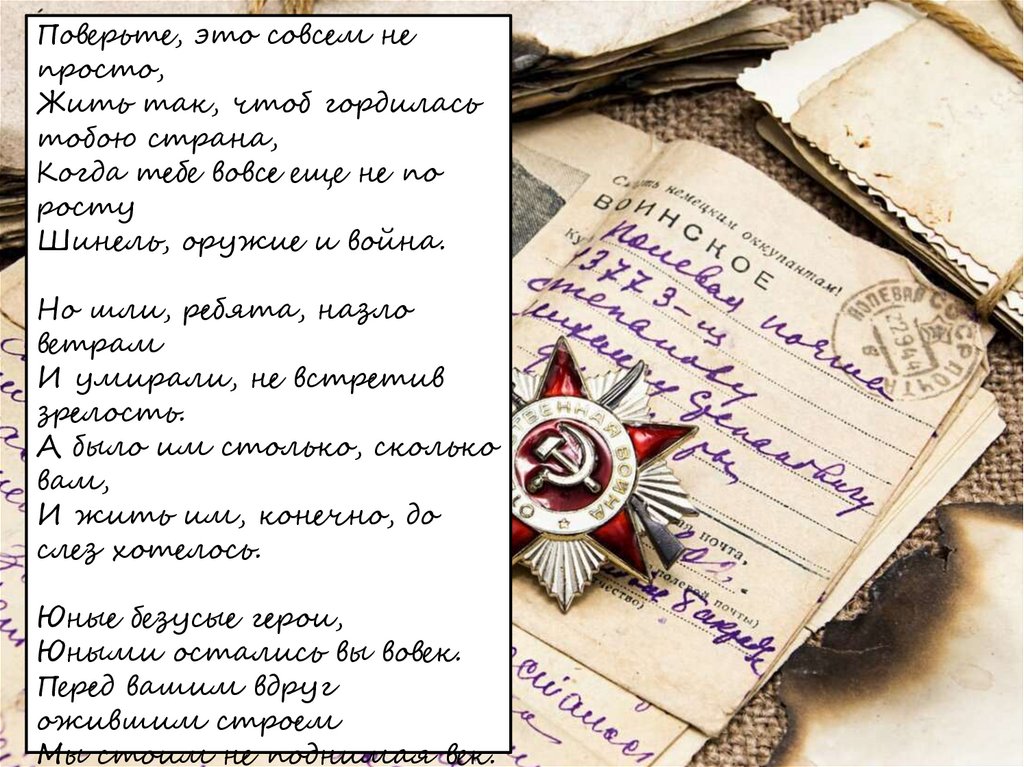 Поверьте, это совсем не
просто,
Жить так, чтоб гордилась
тобою страна,
Когда тебе вовсе еще не по
росту
Шинель, оружие и война.
Но шли, ребята, назло
ветрам
И умирали, не встретив
зрелость.
А было им столько, сколько
вам,
И жить им, конечно, до
слез хотелось.
Юные безусые герои,
Юными остались вы вовек.
Перед вашим вдруг
ожившим строем
Мы стоим не поднимая век.
немецким оккупантам!
ВОИНСКОЕ
Полевая почта
степанову
ПОЛЕВАЯ
СССР
ПОЧТА
ОТЕЧЕСТВЕННАЯ ВОЙНА
почта,
полевой почты)